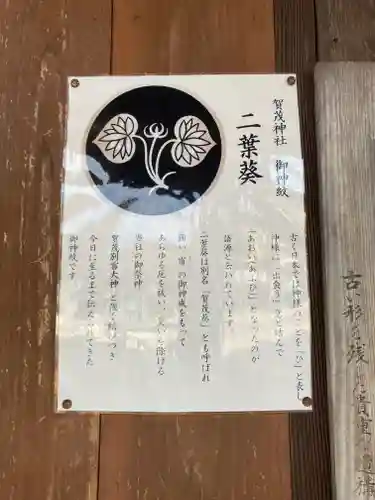 賀茂神社 御神紋
二葉葵
古く日本では神様のことを「ひ」と表し
神様に「出会う」を
「あふひ」「あふひ」となったのが
語源と云われています。
二葉葵は別名「賀茂葵」とも呼ばれ
の御神威をもって
あらゆる厄を祓い、災いを除ける
当社の御祭神
賀茂別雷大神 と深く結びつき
今日に至るまで伝えられてきた
御神紋です
古い形を残した貴重な